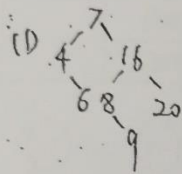 (1) 7
4 16
6 8 20
9